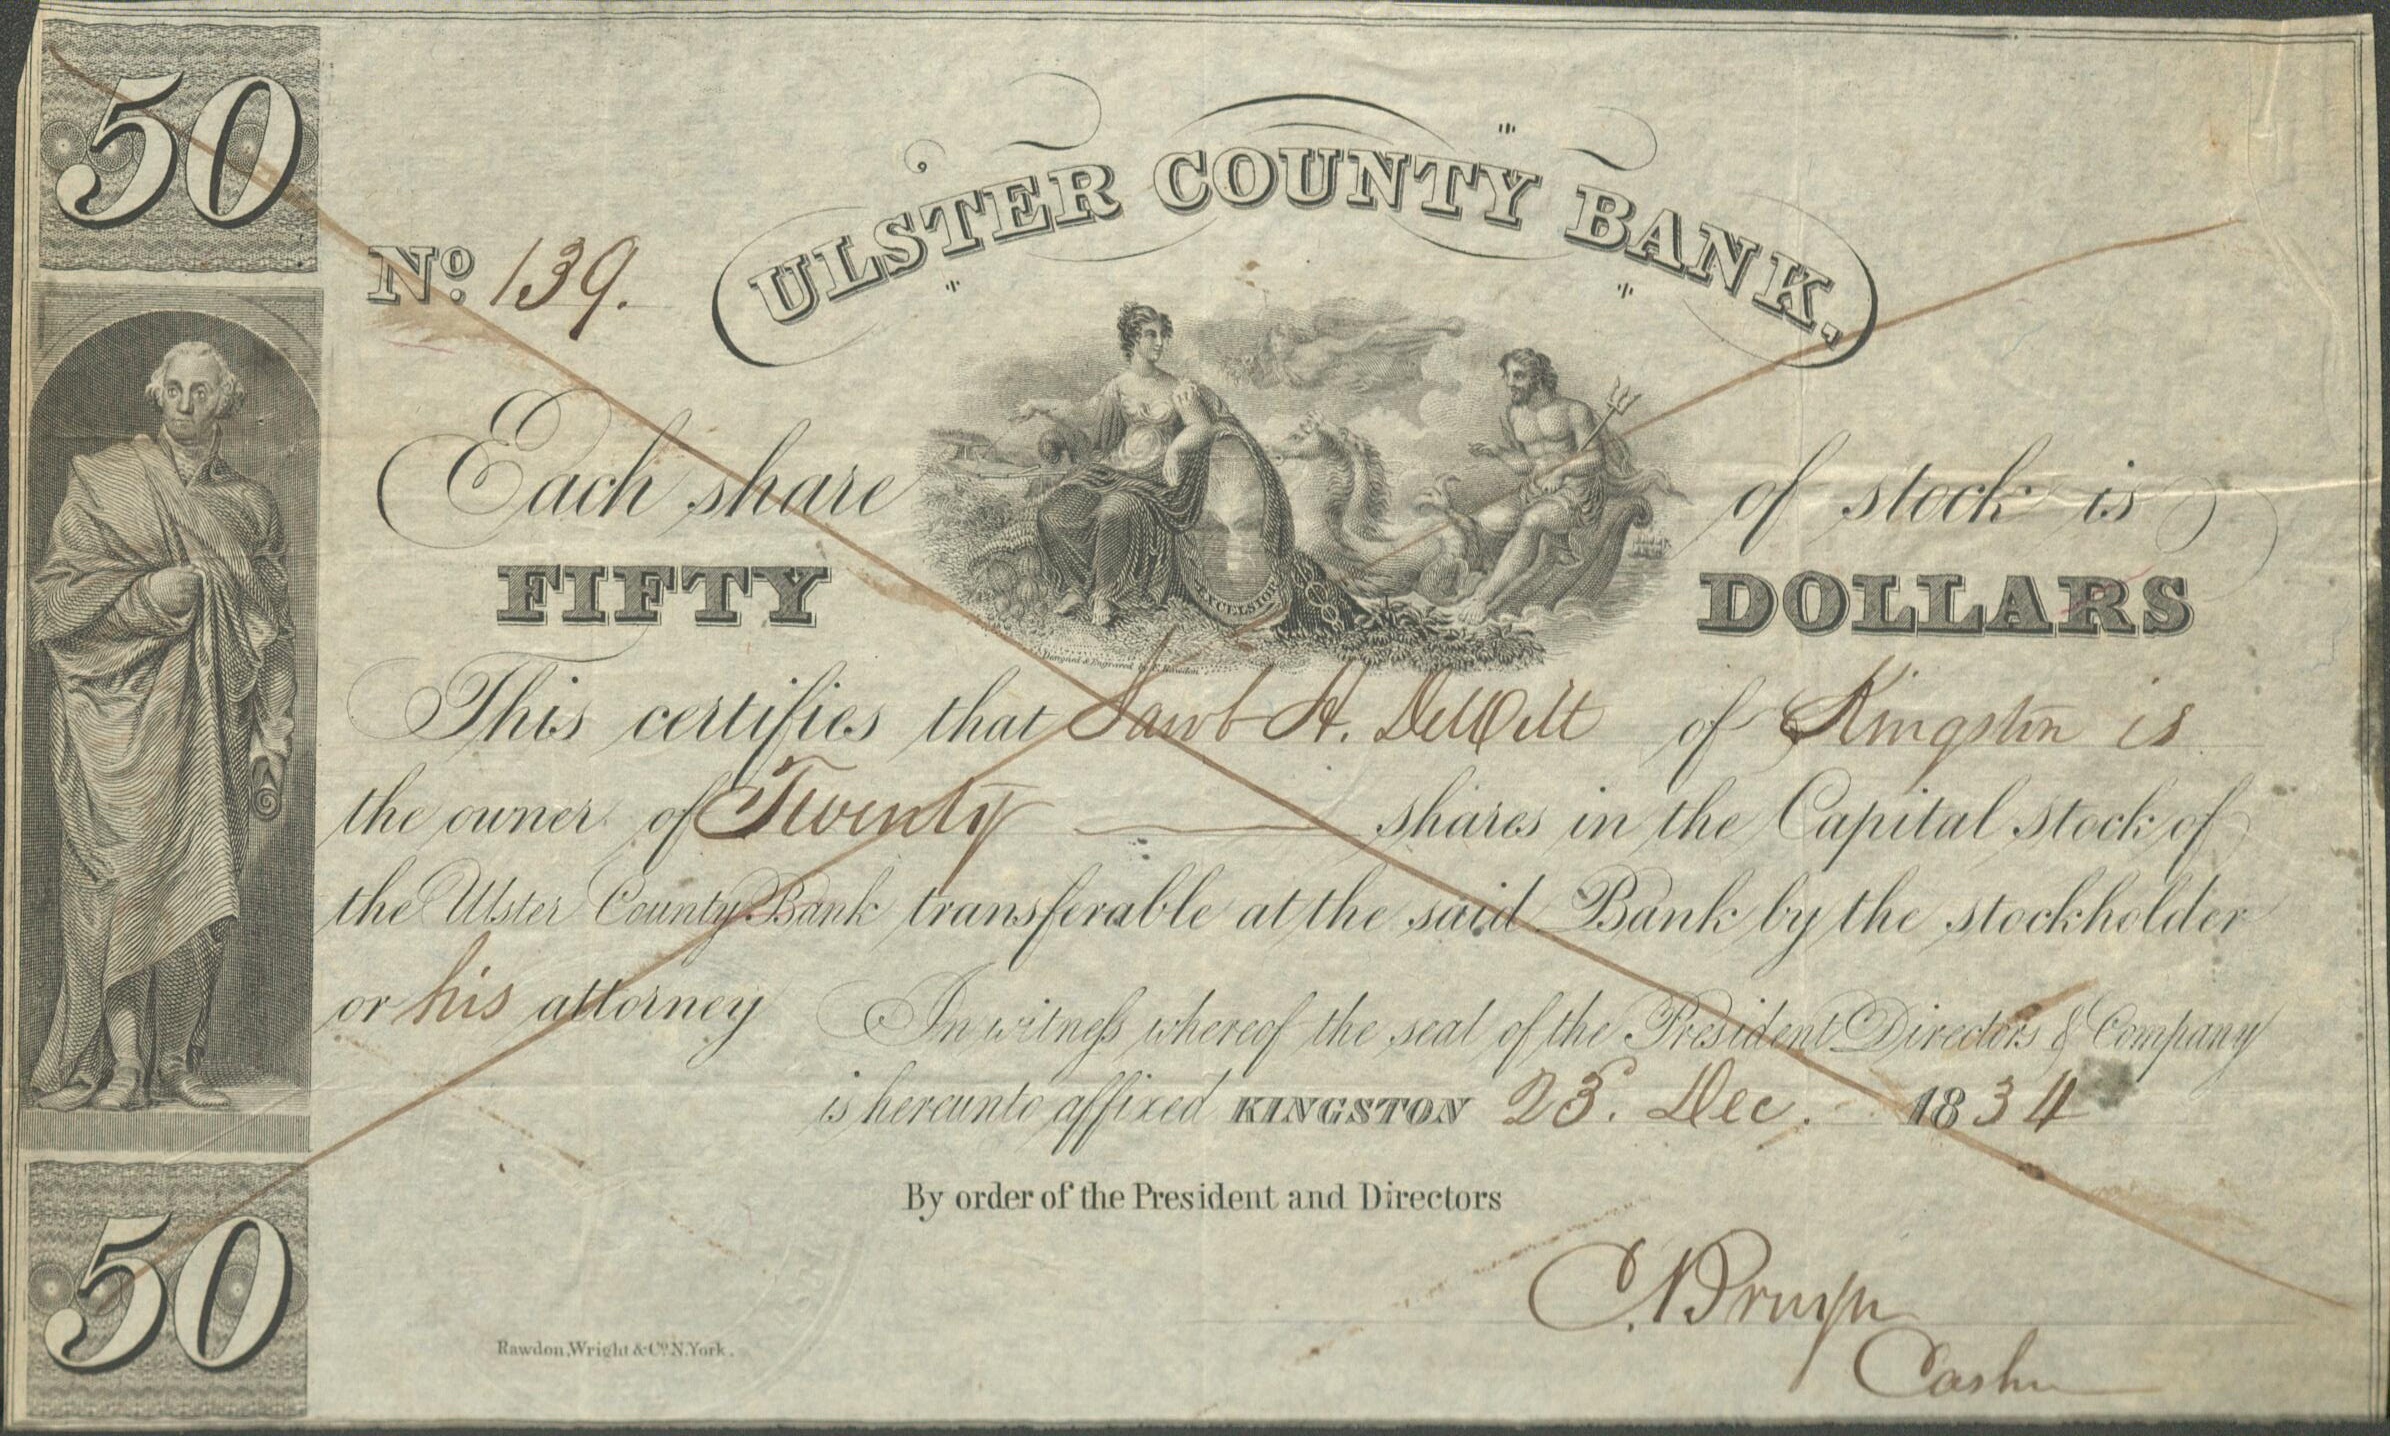 50
ULSTER COUNTY BANK,
No. 139.
Each share of stock is
FIFTY DOLLARS
EXCELSIOR
Designed & Engraved by F. Rawdon
This certifies that Jacob H. DeWitt of Kingston is
the owner of Twenty shares in the Capital stock of
the Ulster County Bank transferable at the said Bank by the stockholder
or his attorney In witness whereof the seal of the President Directors & Company
is hereunto affixed KINGSTON 23. Dec. 1834
By order of the President and Directors
C. Bruyn
Cashr
Rawdon, Wright & Co. N. York.
50